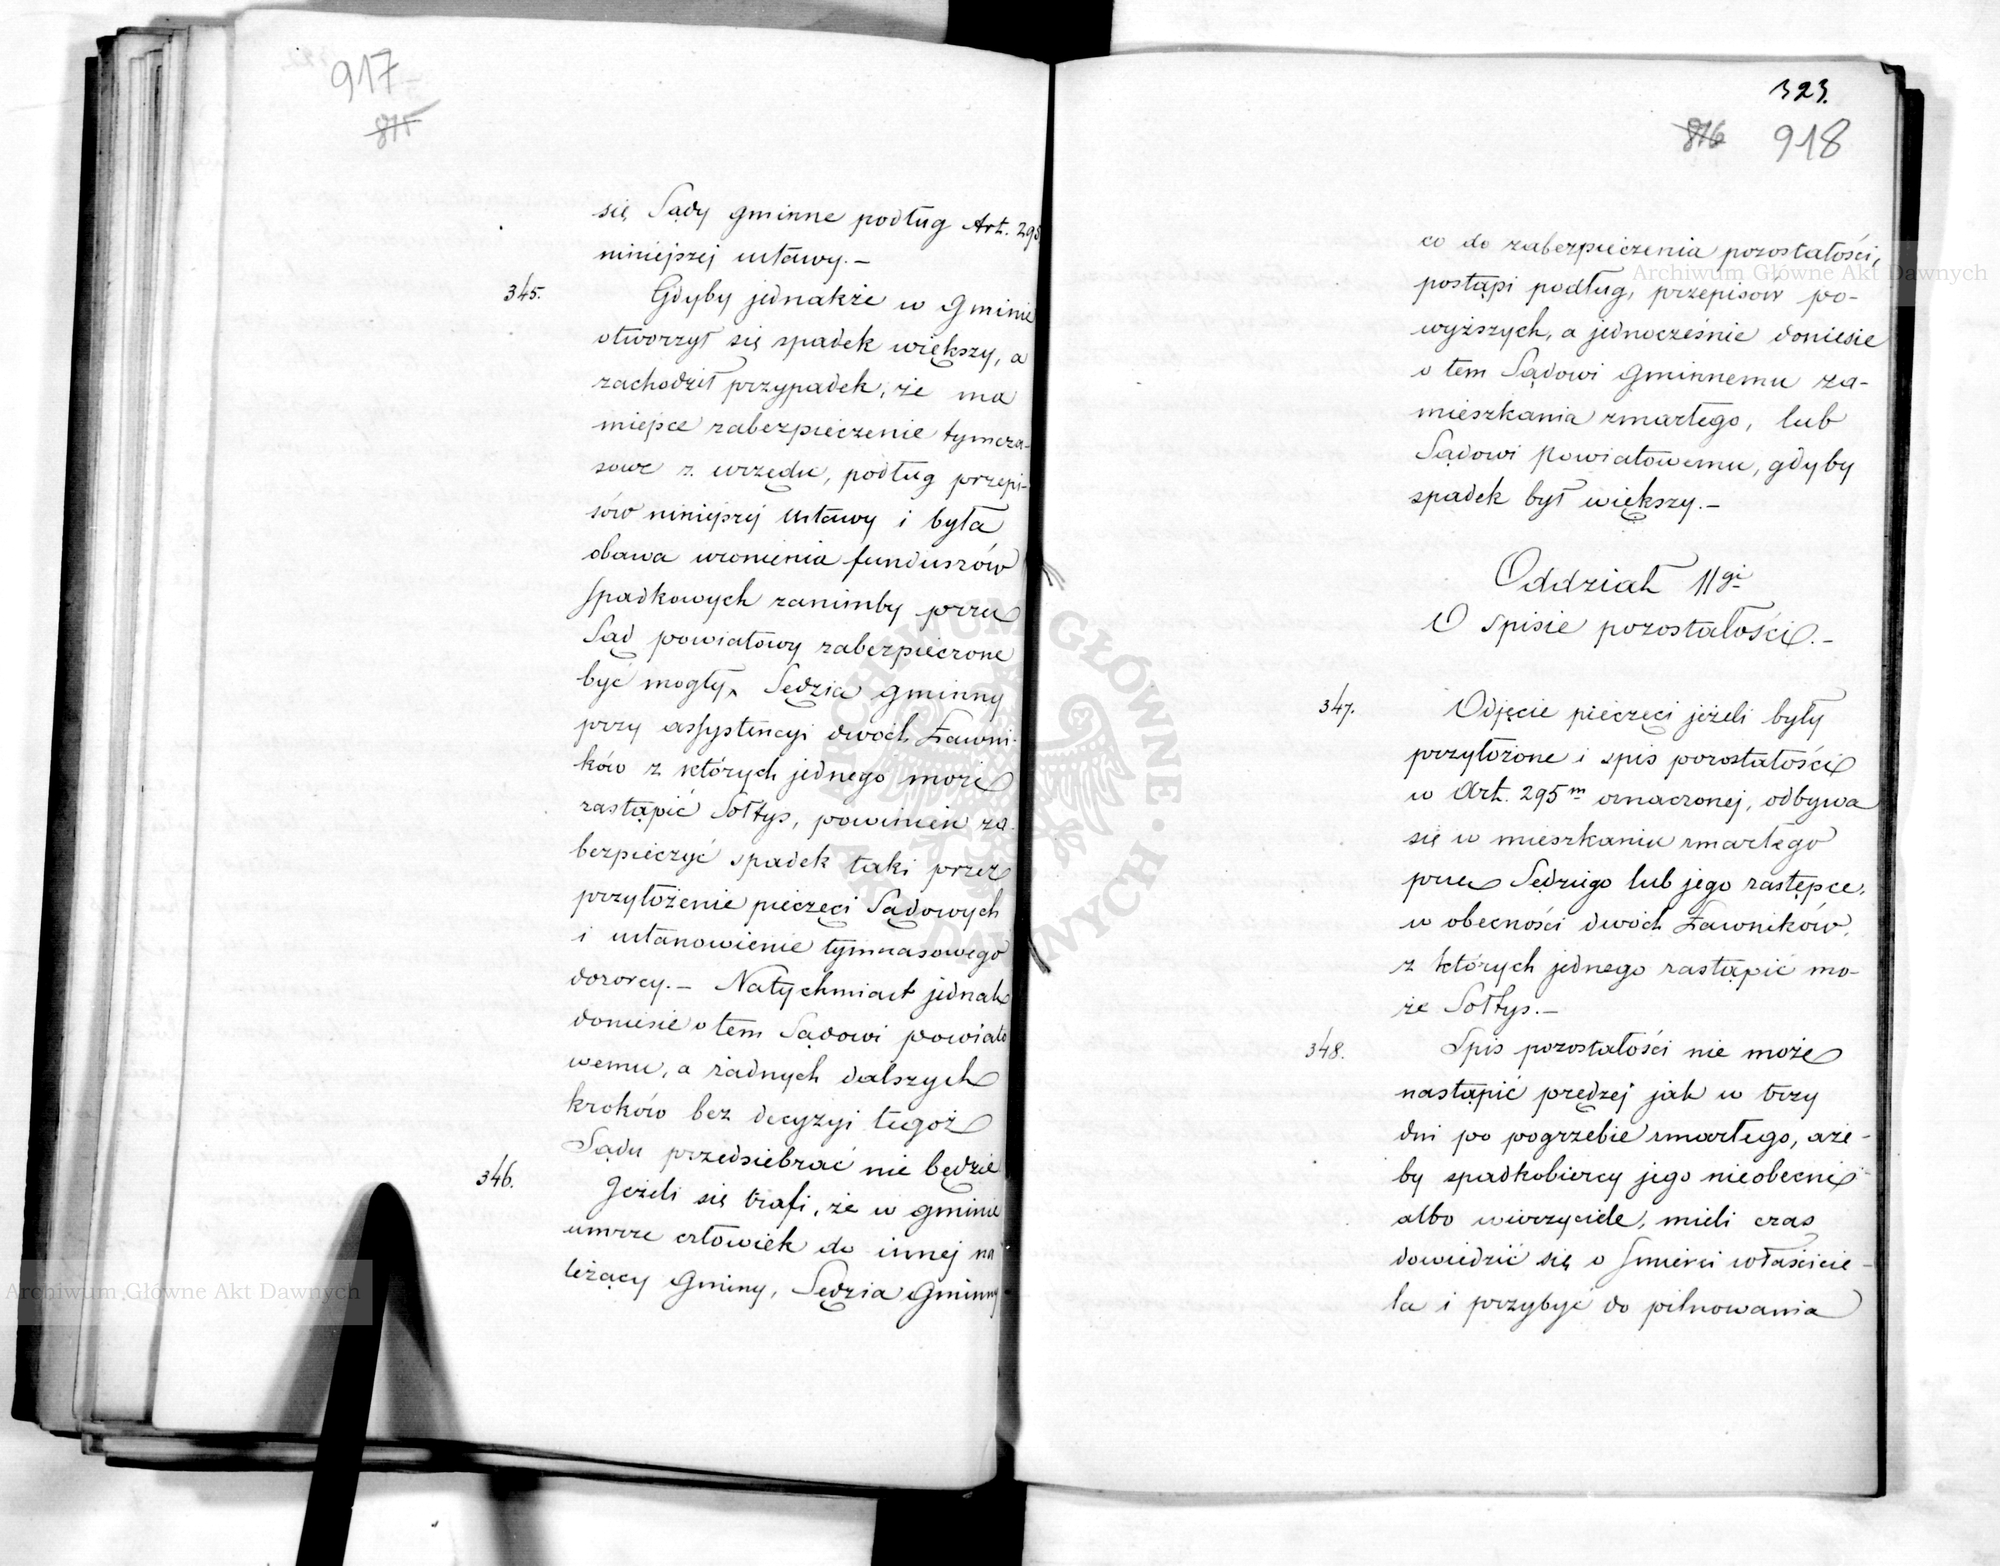 917
875
się Sądy gminne podług Art. 295
niniejszej ustawy.—
345. Gdyby jednakże w Gminie
otworzył się spadek większy, a
zachodził przypadek, że ma
miejsce zabezpieczenie tymcza-
sowe z urzędu, podług przepi-
sów niniejszej Ustawy i była
obawa uronienia funduszów
spadkowych zanimby przez
Sąd powiatowy zabezpieczone
być mogły, Sędzia gminny
przy assystencyi dwóch Ławni-
ków z których jednego może
zastąpić Sołtys, powinien za-
bezpieczyć spadek taki przez
przyłożenie pieczęci Sądowych
i ustanowienie tymczasowego
dozorcy.— Natychmiast jednak
doniesie o tem Sądowi powiato
wemu, a żadnych dalszych
kroków bez decyzyi tegoż
Sądu przedsiebrać nie będzie
346. Jeżeli się trafi, że w gminie
umrze człowiek do innej na
leżący Gminy, Sędzia Gminny
323.
876 918
co do zabezpieczenia pozostałości,
postąpi podług, przepisow po-
wyższych, a jednocześnie doniesie
o tem Sądowi Gminnemu za-
mieszkania zmarłego, lub
Sądowi Powiatowemu, gdyby
spadek był większy.—
Oddział IIgi
O spisie pozostałości.—
347. Odjęcie pieczęci jeżeli były
przyłożone i spis pozostałości
w Art. 295m oznaczonej, odbywa
się w mieszkaniu zmarłego
przez Sędziego lub jego zastępce,
w obecności dwóch Ławników,
z których jednego zastąpić mo-
że Sołtys.—
348. Spis pozostałości nie może
nastąpić prędzej jak w trzy
dni po pogrzebie zmarłego, aże-
by spadkobiercy jego nieobecni
albo wierzyciele, mieli czas
dowiedzić się o śmierci właścicie-
la i przybyć do pilnowania
Archiwum Główne Akt Dawnych
Archiwum Główne Akt Dawnych
ARCHIWUM GŁÓWNE AKT DAWNYCH